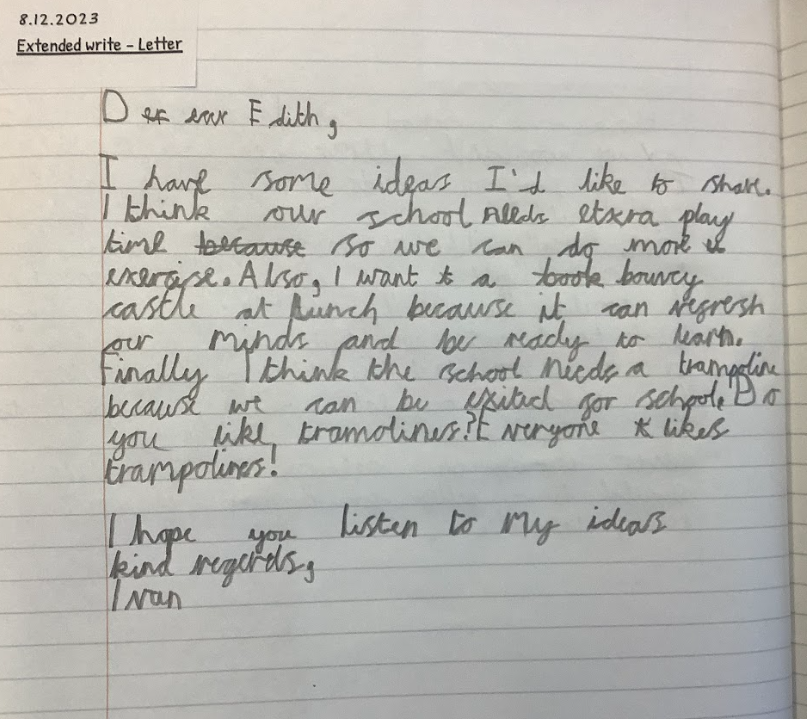 8.12.2023
Extended write – Letter
Dear Edith,
I have some ideas I'd like to share.
I think our school needs etxra play
time because so we can do more
exercise. Also, I want a book bouncy
castle at lunch because it can refresh
our minds and be ready to learn.
Finally I think the school needs a trampoline
because we can be exited for school. Do
you like tramolines? Everyone likes
trampolines!
I hope you listen to my ideas
kind regerds,
Ivan